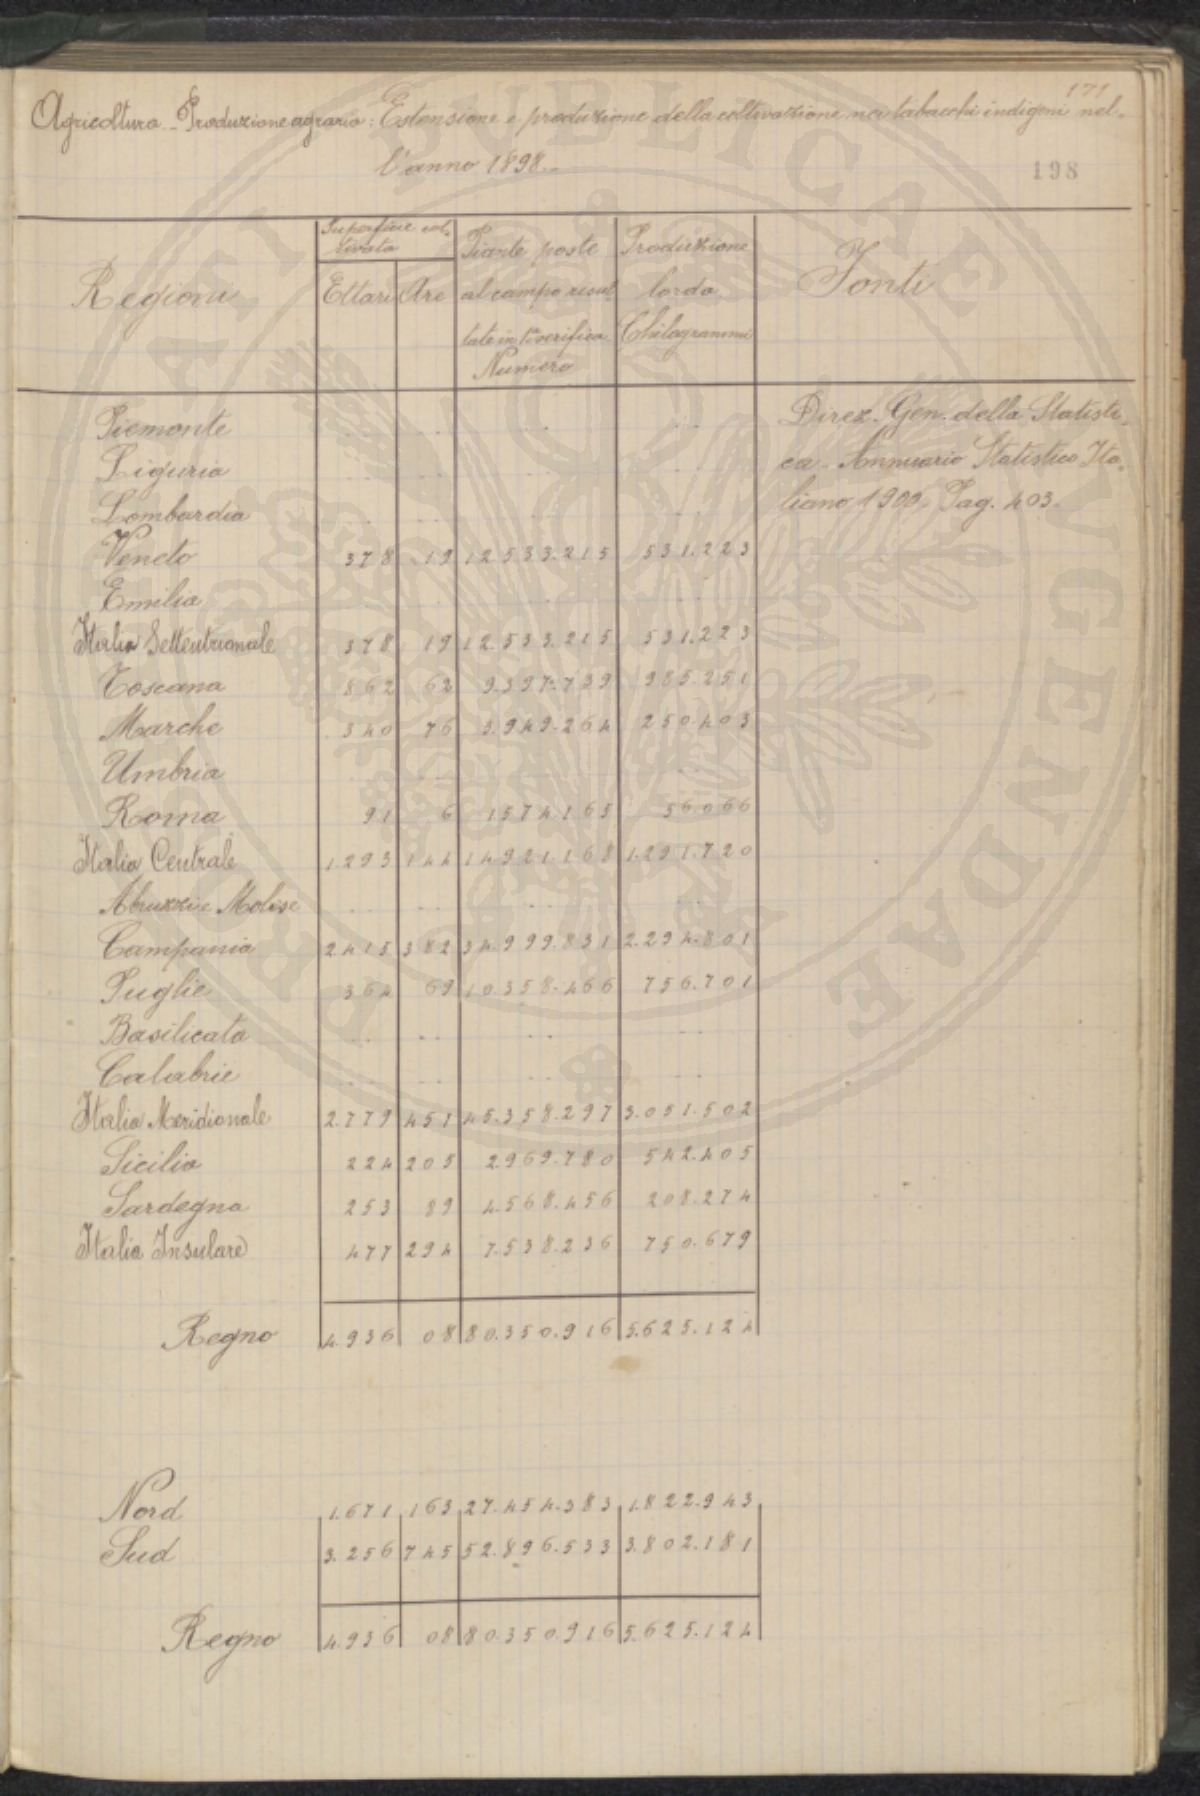 171
Agricoltura - Produzione agraria: Estensione e produzione della coltivazione nei tabacchi indigeni nel-
l'anno 1898.
198
Regioni | Superficie col-tivata Ettari Are | Piante poste al campo resul tate in 1a verifica Numero | Produzione lorda Chilogrammi | Fonti
Piemonte .. .. .. .. Direz. Gen. della Statisti-
Liguria .. .. .. .. ca - Annuario Statistico Ita-
Lombardia .. .. .. .. liano 1900. Pag. 403.
Veneto 378 19 12.533.215 531.223
Emilia .. .. .. ..
Italia Settentrionale 378 19 12.533.215 531.223
Toscana 862 62 9.397.739 985.251
Marche 340 76 3.949.264 250.403
Umbria .. .. .. ..
Roma 91 6 1574165 56.066
Italia Centrale 1.293 144 14921.168 1.291.720
Abruzzi e Molise .. .. .. ..
Campania 2415 382 34.999.831 2.294.801
Puglie 364 69 10.358.466 756.701
Basilicata .. .. .. ..
Calabrie .. .. .. ..
Italia Meridionale 2.779 451 45.358.297 3.051.502
Sicilia 224 205 2969.780 542.405
Sardegna 253 89 4.568.456 208.274
Italia Insulare 477 294 7.538.236 750.679
Regno 4.936 08 80.350.916 5.625.124
Nord 1.671 163 27.454.383 1.822.943
Sud 3.256 745 52.896.533 3.802.181
Regno 4.936 08 80.350.916 5.625.124
PUBLICAE
REI
AUGENDAE